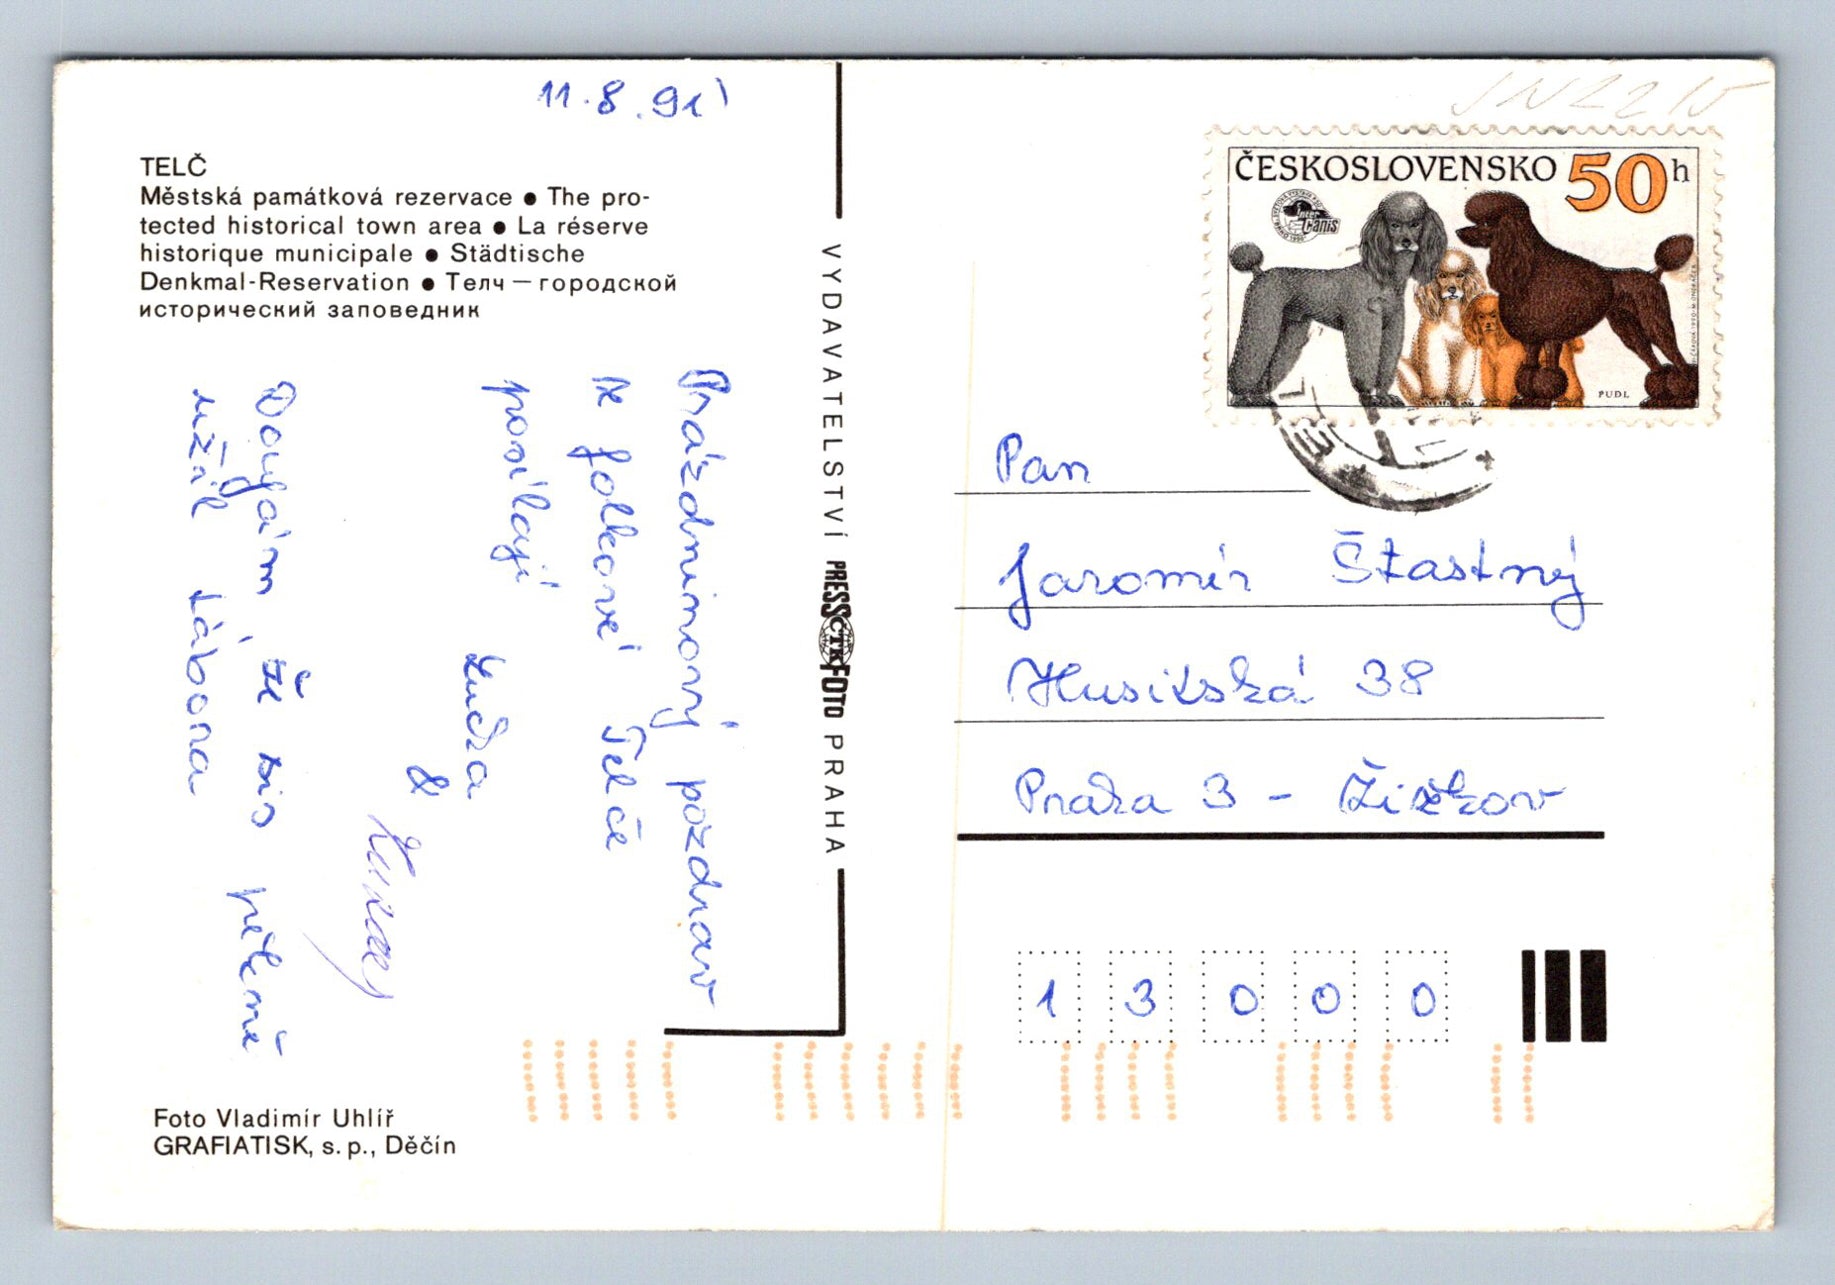 11.8.91
TELČ
Městská památková rezervace ● The pro-
tected historical town area ● La réserve
historique municipale ● Städtische
Denkmal-Reservation ● Телч — городской
исторический заповедник
Prázdninový pozdrav
ze folkové Telče
posílají
Luďka
&
Doufám, že sis pěkně
užil tábora
Foto Vladimír Uhlíř
GRAFIATISK, s. p., Děčín
VYDAVATELSTVÍ PRESSFOTO PRAHA
ČTK
ČESKOSLOVENSKO 50 h
Inter
Canis
PUDL
Pan
Jaromír Šťastný
Husitská 38
Praha 3 - Žižkov
1 3 0 0 0